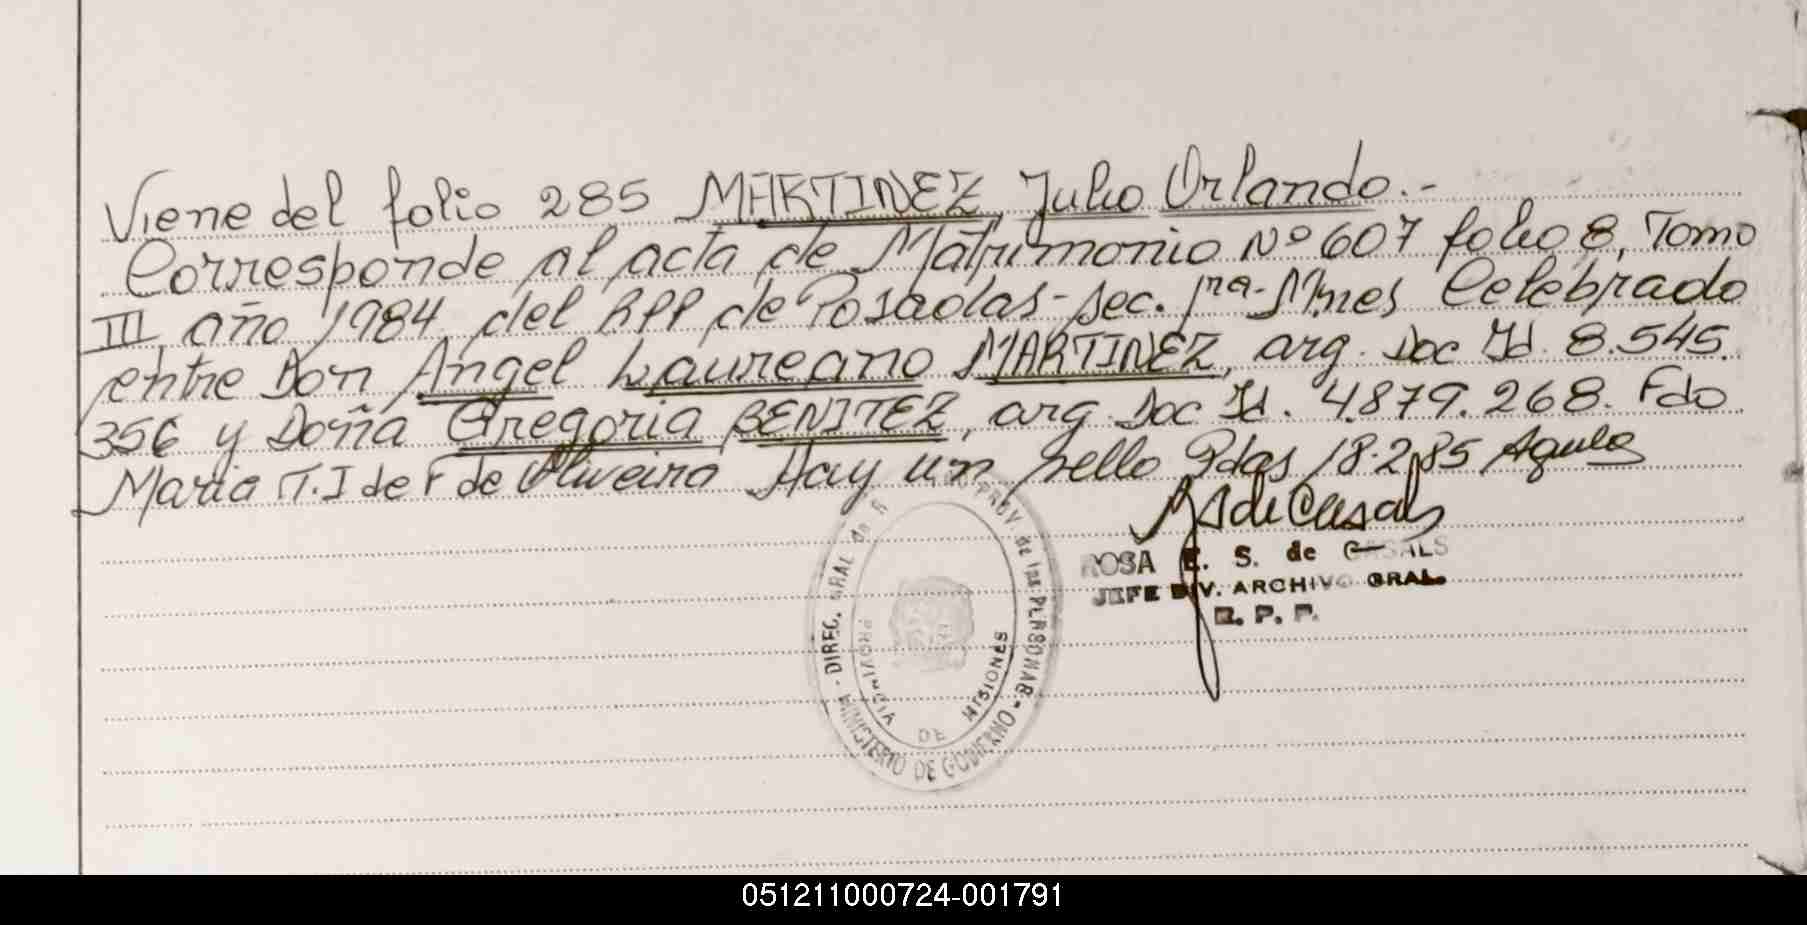 Viene del folio 285 MARTINEZ, Julio Orlando.-
Corresponde al acta de Matrimonio Nº 607 folio 8, Tomo
III, año 1984 del RPP de Posadas-sec. 1ra.-Mnes Celebrado
entre Don Angel Laureano MARTINEZ, arg. Doc Id. 8.545.
356 y Doña Gregoria BENITEZ, arg. Doc Id. 4.879.268. Fdo
Maria T.I de F de Oliveira Hay un sello Pdas 18.2.85 Aguila
ROSA E. S. de CASALS
JEFE DIV. ARCHIVO GRAL.
R. P. P.
DIREC. GRAL de R PROV de las PERSONAS
PROVINCIA DE MISIONES
MINISTERIO DE GOBIERNO
051211000724-001791